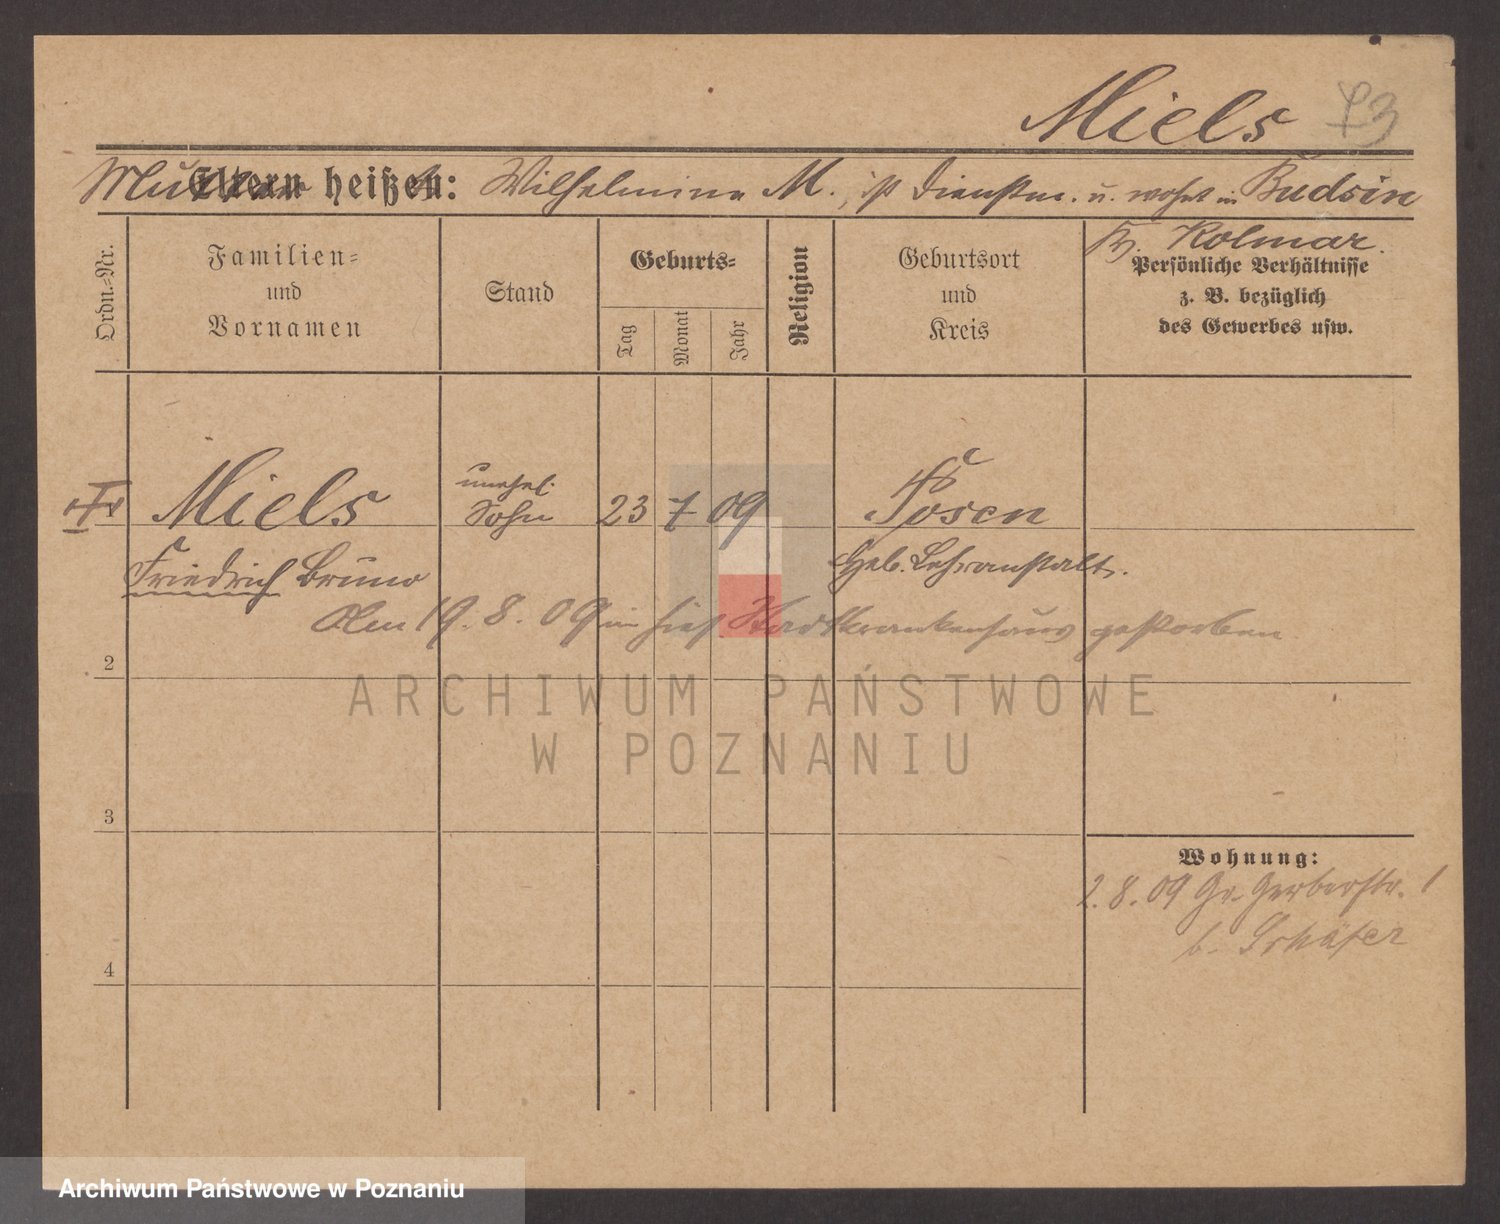 Miels 73
Mutter heißt: Wilhelmine M., ist Dienstm. u. wohnt in Budsin
Kr. Kolmar.
Ordn.-Nr.
Familien-
und
Vornamen
Stand
Geburts-
Tag
Monat
Jahr
Religion
Geburtsort
und
Kreis
Persönliche Verhältnisse
z. B. bezüglich
des Gewerbes usw.
1 Miels unehel. Sohn 23 7 09 Posen
Friedrich Bruno Heb. Lehranstalt.
Am 19. 8. 09 im hies Stadtkrankenhaus gestorben
2
ARCHIWUM PAŃSTWOWE
W POZNANIU
3
Wohnung:
2.8.09 Gr. Gerberstr. 1
b. Schäfer
4
Archiwum Państwowe w Poznaniu